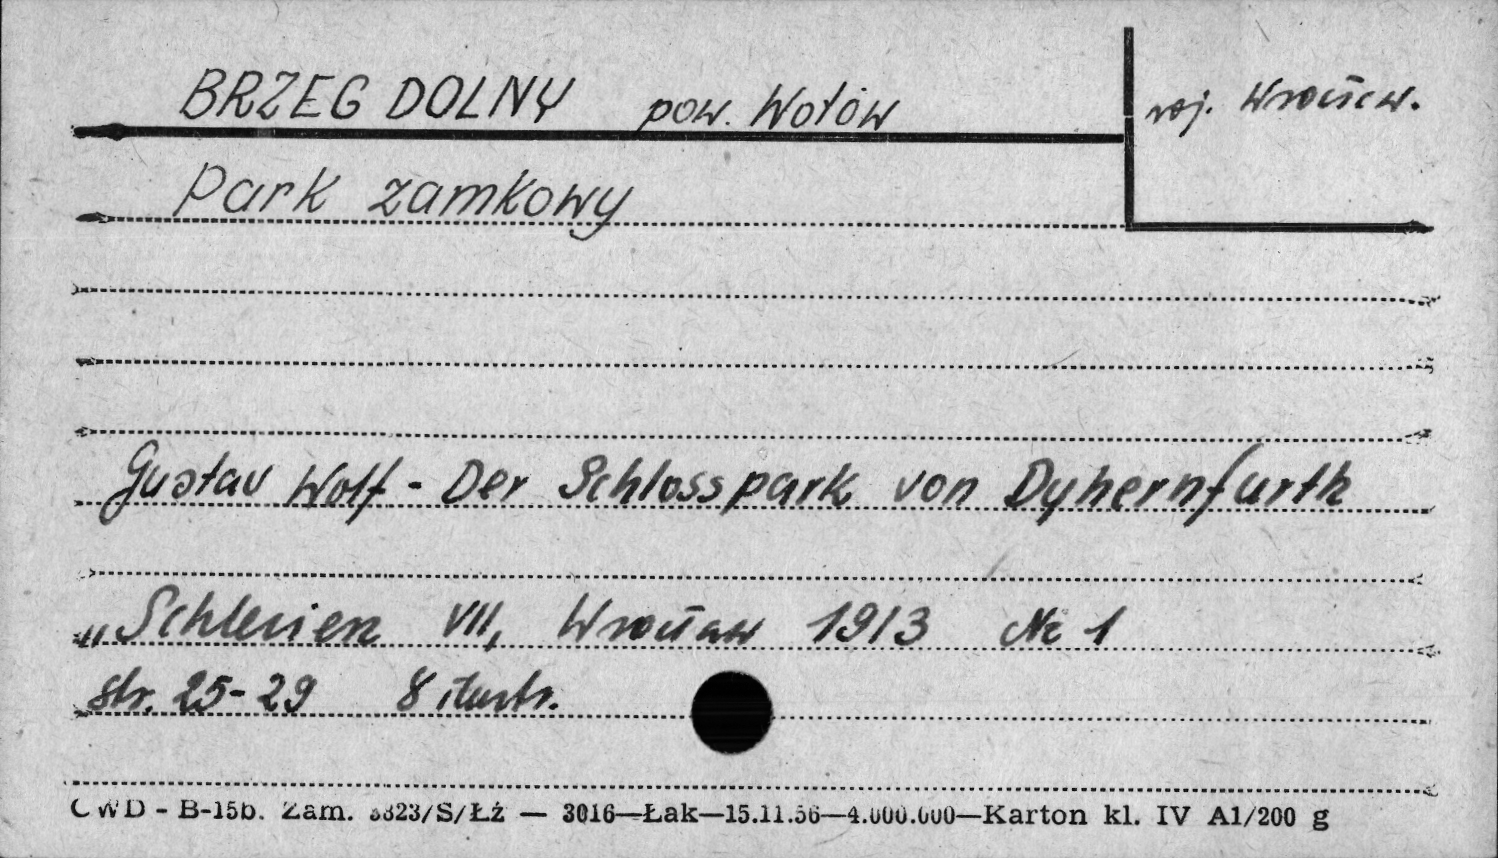 BRZEG DOLNY pow. Wołów woj. Wrocław.
Park zamkowy
Gustav Wolf - Der Schlosspark von Dyhernfurth
"Schlesien VII, Wrocław 1913 Nr 1
str. 25-29 8 ilustr.
CWD - B-15b. Zam. 3823/S/Łź — 3016—Łak—15.11.56—4.000.000—Karton kl. IV A1/200 g